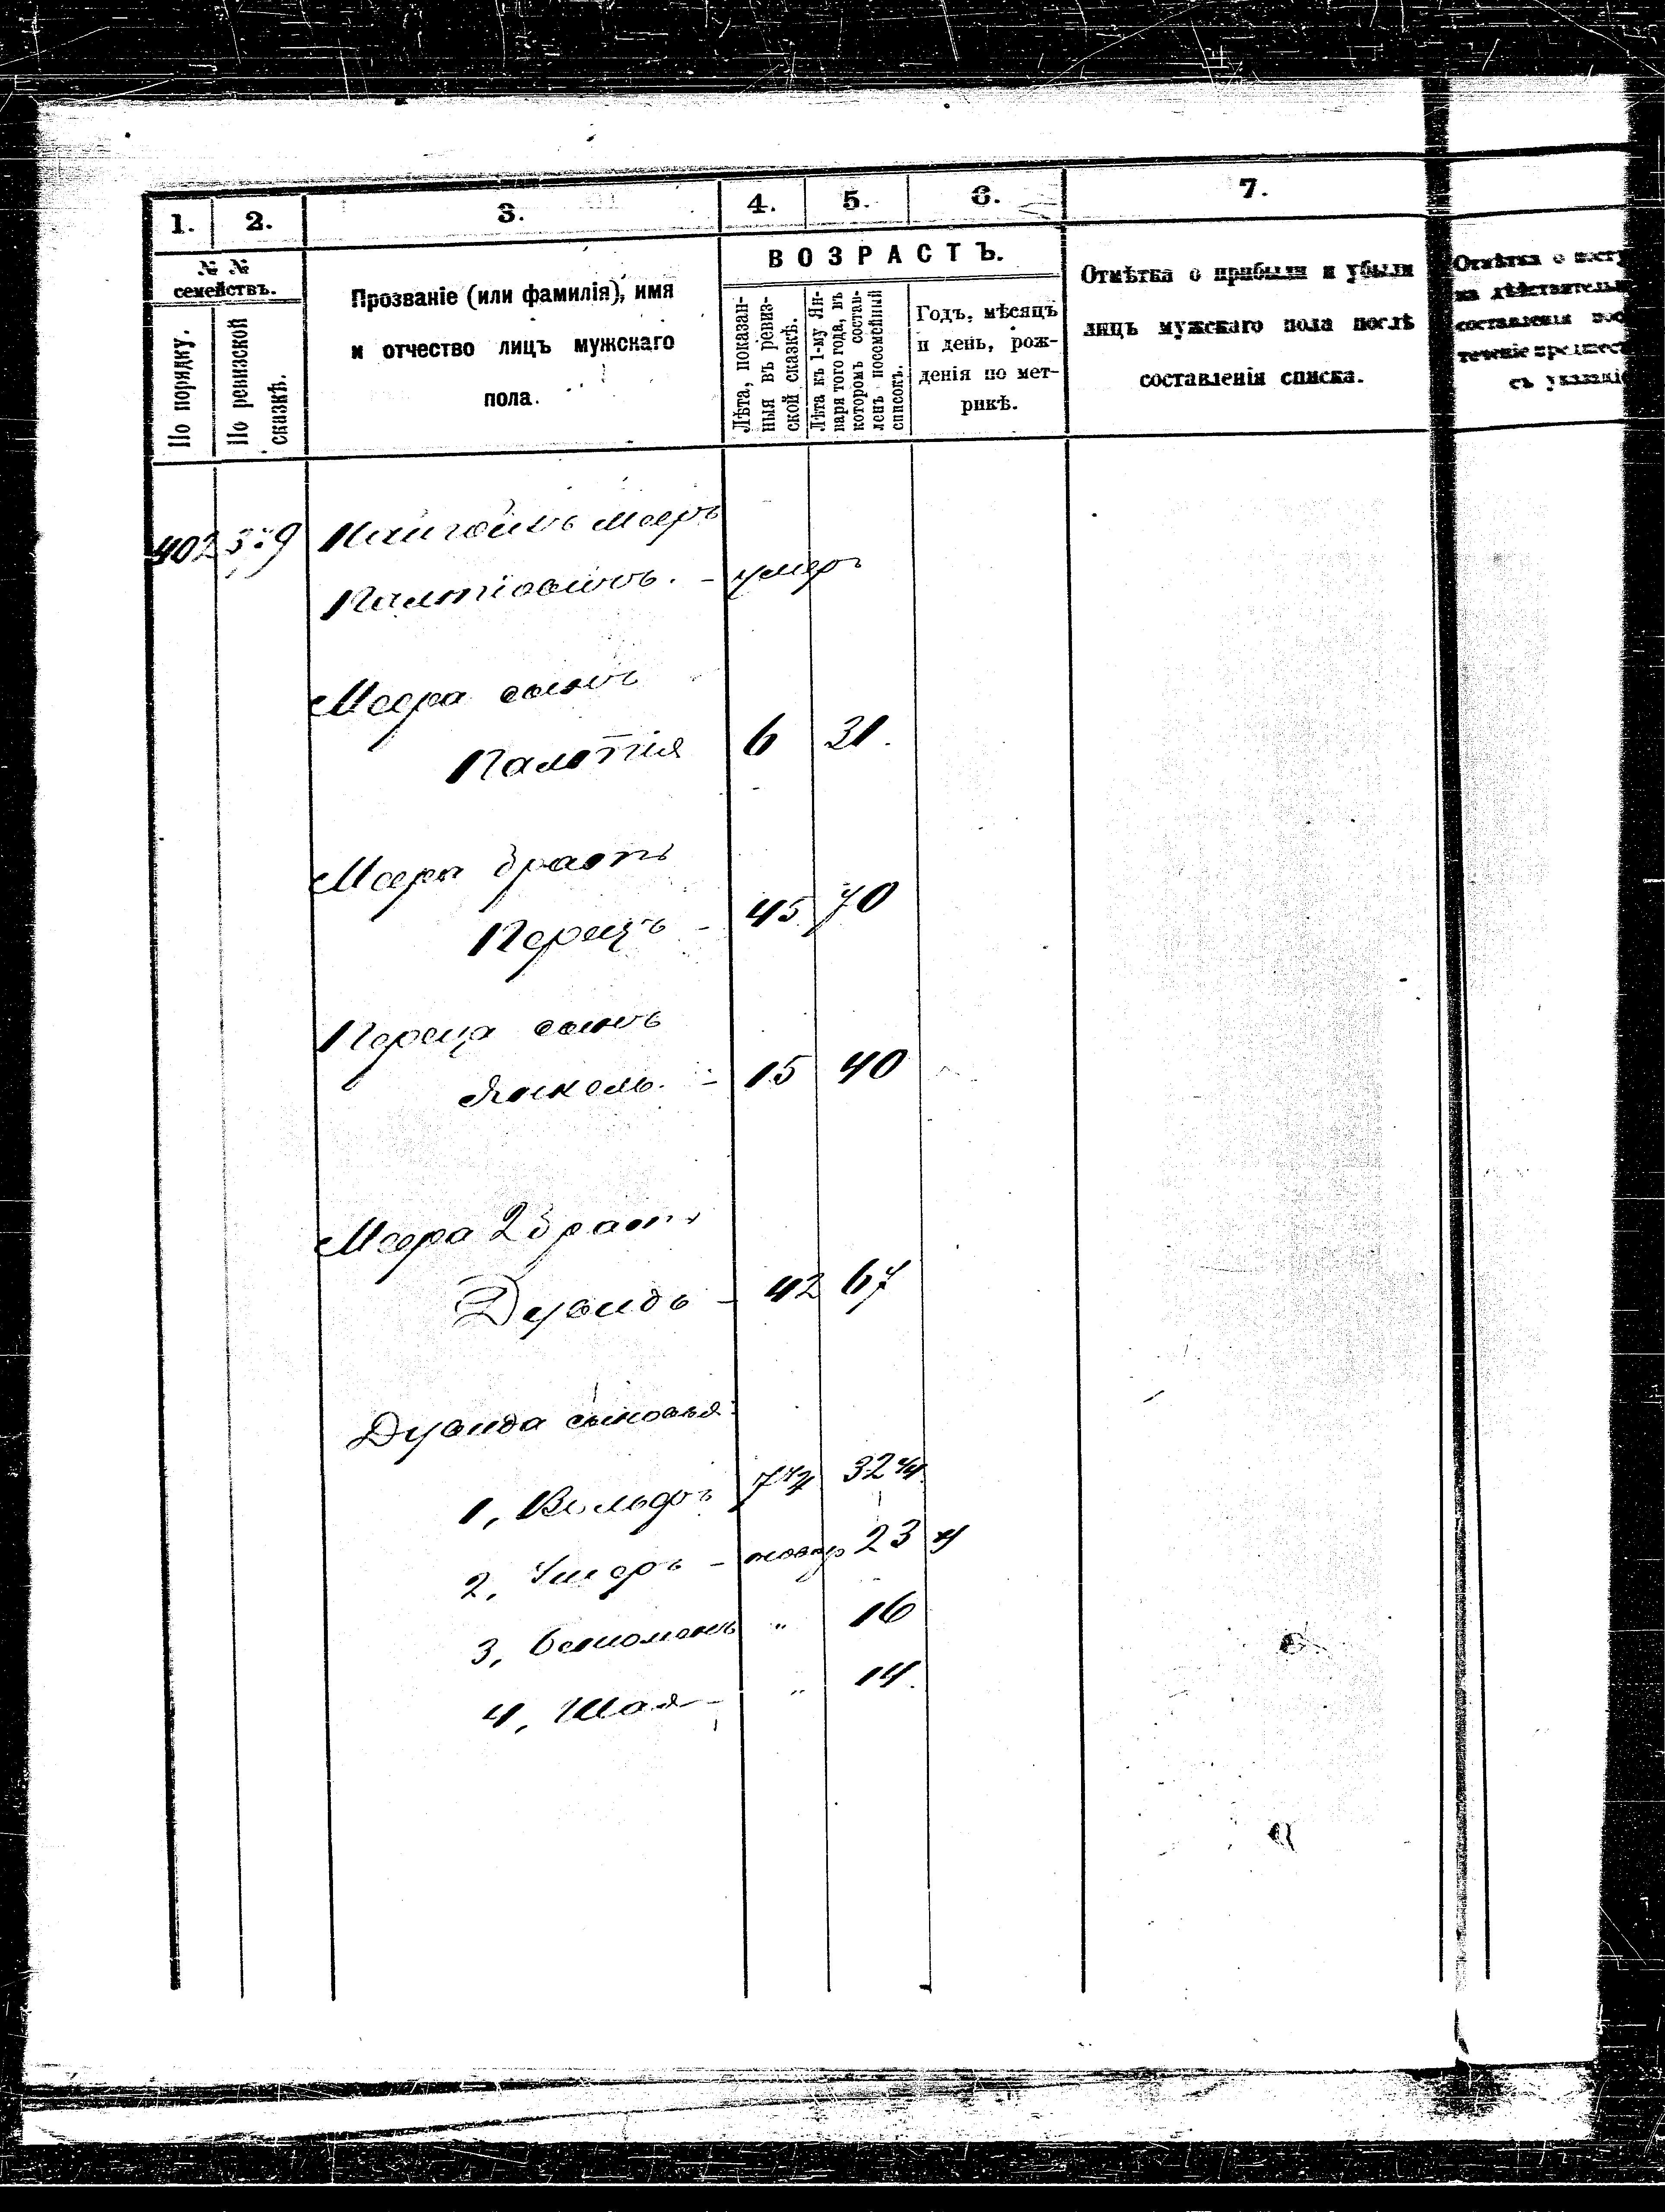 1. 2. 3. 4. 5. 6. 7.
№ №
семействъ.
По порядку.
По ревизской
сказкѣ.
Прозваніе (или фамилія), имя
и отчество лицъ мужскаго
пола.
ВОЗРАСТЪ.
Лѣта, показан-
ныя въ ревиз-
ской сказкѣ.
Лѣта къ 1-му Ян-
варя того года, въ
которомъ состав-
ленъ посемейный
списокъ.
Годъ, мѣсяцъ
и день, рож-
денія по мет-
рикѣ.
Отмѣтка о прибыли и убыли
лицъ мужскаго пола послѣ
составленія списка.
Отмѣтка о посту
на дѣйствительн
составленія пос
теченіе предшест
съ указаніе
402 Мееръ
Палтіовичъ. - умеръ
Меера сынъ
Палтія 6 31.
Меера братъ
Перецъ - 45 70
Переца сынъ
Янкель. - 15 40
Меера 2 братъ
Дувидъ - 42 67
Дувида сыновья:
1, Вольфъ 7 32
2, Ушеръ - 23
3, " 16
4, Шая - " 14.